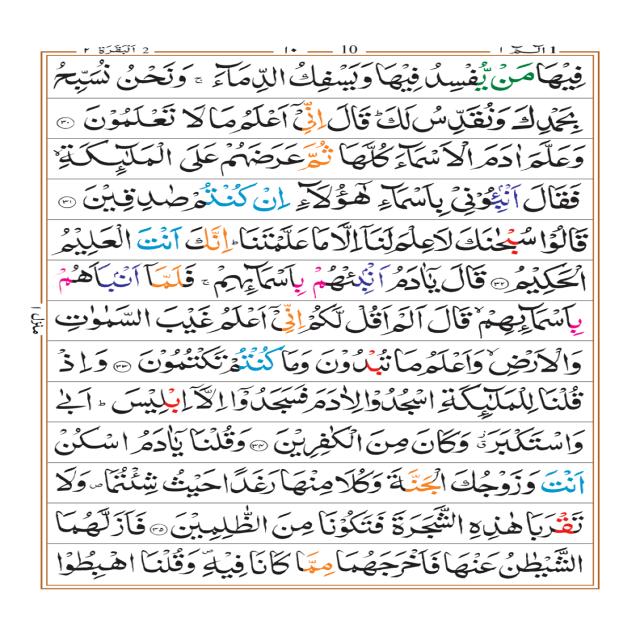 الٓـمّٓ ۱ 1 10 ۱۰ 2 اَلْبَقَرَة ۲
فِيْهَا مَنْ يُّفْسِدُ فِيْهَا وَيَسْفِكُ الدِّمَآءَ ۚ وَنَحْنُ نُسَبِّحُ
بِحَمْدِكَ وَنُقَدِّسُ لَكَ ؕ قَالَ اِنِّيْٓ اَعْلَمُ مَا لَا تَعْلَمُوْنَ ﴿۳۰﴾
وَعَلَّمَ اٰدَمَ الْاَسْمَآءَ كُلَّهَا ثُمَّ عَرَضَهُمْ عَلَى الْمَلٰٓئِكَةِ ۙ
فَقَالَ اَنْۢبِـُٔوْنِيْ بِاَسْمَآءِ هٰٓؤُلَآءِ اِنْ كُنْتُمْ صٰدِقِيْنَ ﴿۳۱﴾
قَالُوْا سُبْحٰنَكَ لَا عِلْمَ لَنَآ اِلَّا مَا عَلَّمْتَنَا ؕ اِنَّكَ اَنْتَ الْعَلِيْمُ
الْحَكِيْمُ ﴿۳۲﴾ قَالَ يٰٓاٰدَمُ اَنْۢبِئْهُمْ بِاَسْمَآئِهِمْ ۚ فَلَمَّآ اَنْۢبَاَهُمْ
بِاَسْمَآئِهِمْ ۙ قَالَ اَلَمْ اَقُلْ لَّكُمْ اِنِّيْٓ اَعْلَمُ غَيْبَ السَّمٰوٰتِ
وَالْاَرْضِ ۙ وَاَعْلَمُ مَا تُبْدُوْنَ وَمَا كُنْتُمْ تَكْتُمُوْنَ ﴿۳۳﴾ وَاِذْ
قُلْنَا لِلْمَلٰٓئِكَةِ اسْجُدُوْا لِاٰدَمَ فَسَجَدُوْٓا اِلَّآ اِبْلِيْسَ ؕ اَبٰى
وَاسْتَكْبَرَ ۗ وَكَانَ مِنَ الْكٰفِرِيْنَ ﴿۳۴﴾ وَقُلْنَا يٰٓاٰدَمُ اسْكُنْ
اَنْتَ وَزَوْجُكَ الْجَنَّةَ وَكُلَا مِنْهَا رَغَدًا حَيْثُ شِئْتُمَا ۪ وَلَا
تَقْرَبَا هٰذِهِ الشَّجَرَةَ فَتَكُوْنَا مِنَ الظّٰلِمِيْنَ ﴿۳۵﴾ فَاَزَلَّهُمَا
الشَّيْطٰنُ عَنْهَا فَاَخْرَجَهُمَا مِمَّا كَانَا فِيْهِ ۪ وَقُلْنَا اهْبِطُوْا
منزل ۱